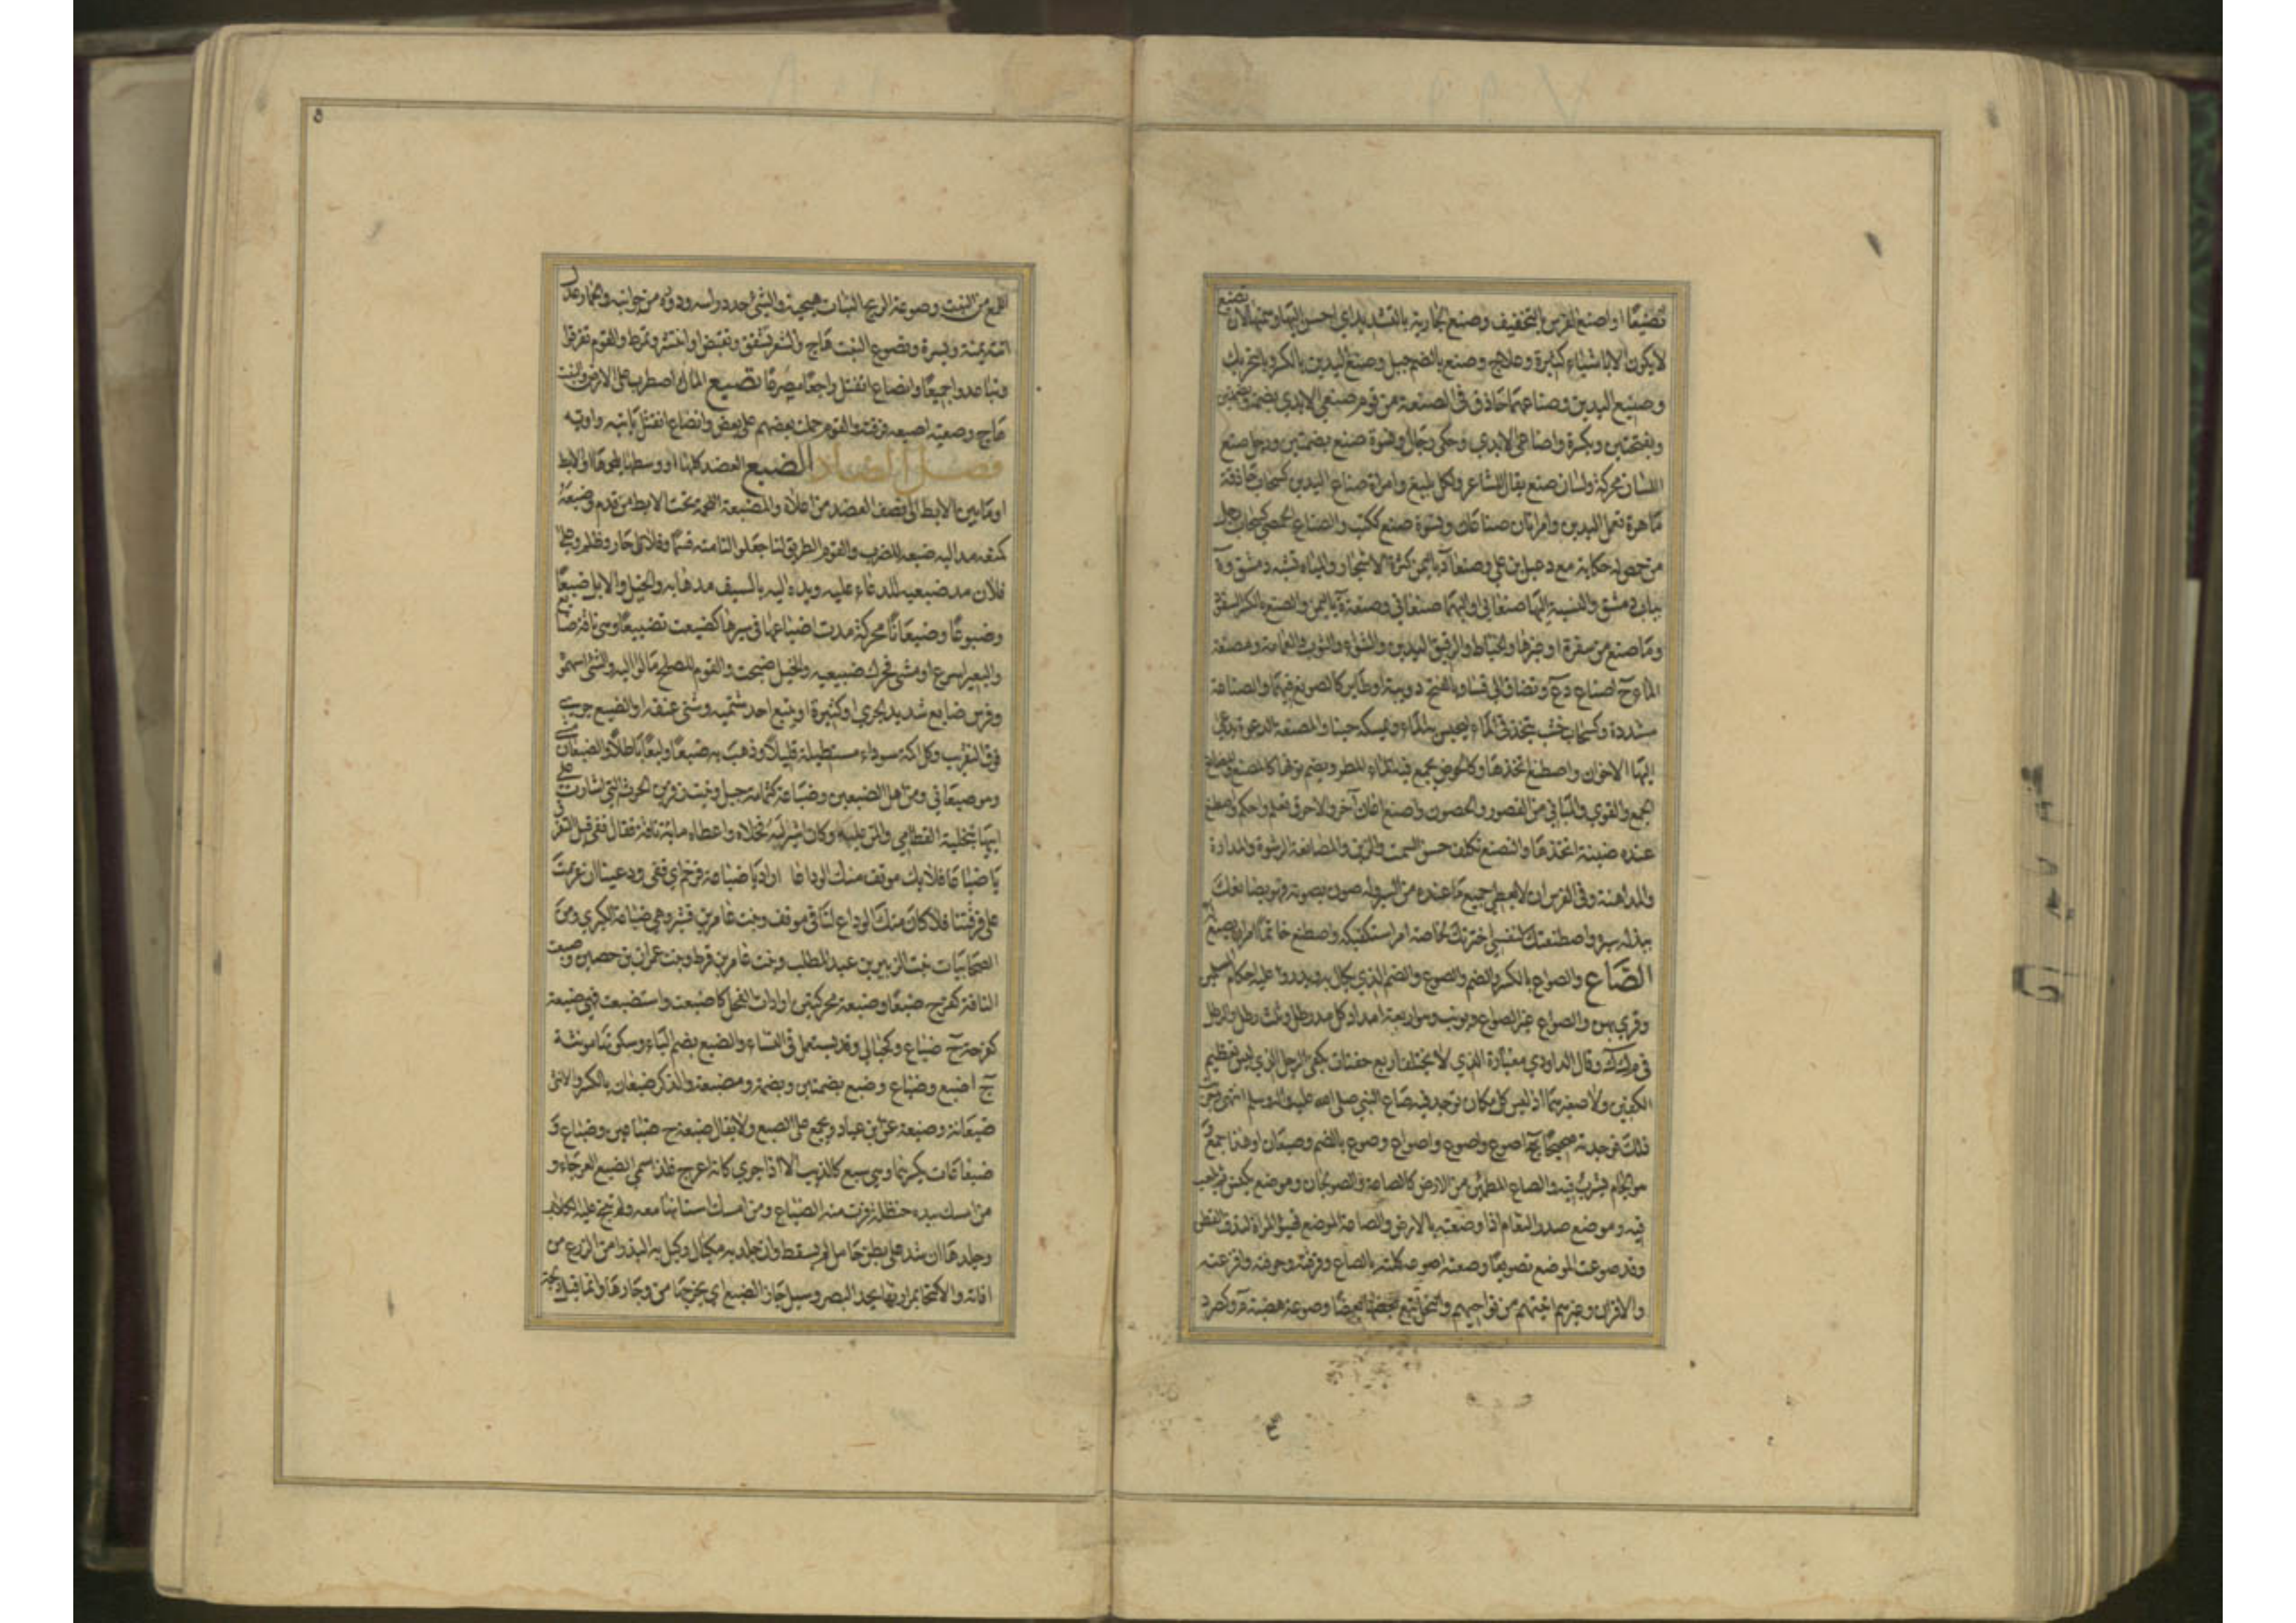 تصنيعًا او اصنع الفرس بالتخفيف وصنع الجارية بالتشديد اي احسن اليها وسمنها لان تصنيع
لا يكون الا باشياء كثيرة وعلاج وصنع بالضم جبل وصنع اليدين بالكسر وبالتحريك
وصنيع اليدين وصناعهما حاذق في الصنعة من قوم صنعى الايدي بضمة وبضمتين
وبفتحتين وبكسرة واصناع الايدي وحكي رجال ونسوة صنع بضمتين ورجل صنع
اللسان محركة ولسان صنع يقال للشاعر ولكل بليغ وامراة صناع اليدين كسحاب حاذقة
ماهرة بعمل اليدين وامراتان صناعان ونسوة صنع ككتب والصناع الحمصي كسحاب رجل
من حمص له حكاية مع دعبل بن علي وصنعاء د باليمن كثيرة الاشجار والمياه تشبه دمشق وة
بباب دمشق والنسبة اليها صنعاني او اليهما صنعاني وصنعة ة باليمن والصنع بالكسر السفود
وما صنع من سفرة او غيرها والخياط والرقيق اليدين والشواء والثوب والعمامة ومصنعة
الماء ج اصناع
مشددة وكسحاب خشب يتخذ في الماء ليحبس به الماء ويمسكه حينا والمصنعة الدعوة يدعى
اليها الاخوان واصطنع اتخذها وكالحوض يجمع فيه ماء المطر ويضم نونها كالمصنع والمصانع
الجمع والقرى والمباني من القصور والحصون واصنع اعان آخر والاخرق تعلم واحكم واصطنع
عنده صنيعة اتخذها والتصنع تكلف حسن السمت والتزين والمصانعة الرشوة والمداراة
والمداهنة وفي الفرس ان لا يعطي جميع ما عنده من السير له صون يصونه فهو يصانعك
ببذله سيره واصطنعتك لنفسي اخترتك لخاصة امر استكفيكه واصطنع خاتما امر ان يصنع له
الصاع والصواع بالكسر والضم والصوع والضم الذي يكال به وتدور عليه احكام المسلمين
وقرئ بهن والصواع غير الصاع ويونث وهو اربعة امداد كل مد رطل وثلث رطل والرطل
في مكك وقال الداودي معياره الذي لا يختلف اربع حفنات بكفي الرجل الذي ليس بعظيم
الكفين ولا صغيرهما اذ ليس كل مكان توجد فيه صاع النبي صلى الله عليه واله وسلم انتهى وجربت
ذلك فوجدته صحيحا ج اصوع واصؤع واصواع وصوع بالضم وصيعان او هذا جمع
هو الجام يشرب فيه والصاع المطمئن من الارض كالصاعة والصولجان وموضع يكنس ثم يلعب
فيه وموضع صدر النعام اذا وضعته بالارض والصاعة الموضع تهيؤ المراة لندف القطن
وقد صوعت الموضع تصويعا وصعته اصوعه كلته بالصاع وفرقته وخوفته وافزعته
والاقران وغيرهم اتيتهم من نواحيهم والنحل تبع بعضها بعضا وصوعة هضبة م وكصرد
اللمع من النبت وصوعة الريح النبات هيجته والشيء حدد راسه ودوره من جوانبه والحمار عدل
اتنه يمنة ويسرة وتصوع النبت هاج والشعر تشقق وتقبض او انتشر وتمرط والقوم تفرقوا
وتباعدوا جميعا وانصاع انفتل راجعا مسرعا تصيع الماء اضطرب على الارض والنبت
هاج وصعته اصيعه فرقته والقوم حملت بعضهم على بعض وانصاع انفتل يائية واوية
فصل الضاد الضبع العضد كلها او وسطها بلحمها او الابط
او ما بين الابط الى نصف العضد من اعلاه والمضبعة اللحمة تحت الابط من قدم وضبعه
كمنعه مد اليه ضبعه للضرب والقوم الطريق لنا جعلوا لنا منه قسما وفلان جار وظلم وعلى
فلان مد ضبعيه للدعاء عليه ويده اليه بالسيف مدها به والخيل والابل ضبعا
وضبوعا وضبعانا محركة مدت اضباعها في سيرها كضبعت تضبيعا وهي ناقة ضابع
والبعير اسرع او مشى فحرك ضبعيه والخيل ضبحت والقوم للصلح مالوا اليه والشيء اسهموه
وفرس ضابع شديد الجري او كثيره او يتبع احد شقيه ويثني عنقه او الضبع جري
فوق التقريب وكل اكمة سوداء مستطيلة قليلا وذهب به ضبعا لبعا باطلا والضبعان
وهو ضبعاني ومن اهل الضبعين وضباعة كثمامة جبل وبنت زفر بن الحرث التي اشارت على
ابيها بتخلية القطامي والمن عليه وكان اسر ابيه فخلاه واعطاه مائة ناقة فقال قفي قبل التفرق
يا ضباعا فلا يك موقف منك الوداعا اراد يا ضباعة فرخم اي قفي ودعينا ان عزمت
على فرقتنا فلا كان منك الوداع لنا في موقف وبنت عامر بن قشر وهي ضباعة الكبرى ومن
الصحابيات بنت الزبير بن عبد المطلب وبنت عامر بن قرط وبنت عمران بن حصين وضبعت
الناقة كفرح ضبعا وضبعة محركتين ارادت الفحل كاضبعت واستضبعت فهي ضبعة
كفرحة ج ضباع وكحبالى وقد يستعمل في النساء والضبع بضم الباء وسكونها مونثة
ج اضبع وضباع وضبع بضمتين وبضمة ومضبعة والذكر ضبعان بالكسر والانثى
ضبعانة وضبعة عن ابن عباد ويجمع على الضبع ولا يقال ضبعة ج ضباعين وضباع و
ضبعانات بكسرهما وهي سبع كالذئب الا اذا جرى كانه اعرج فلذا سمي الضبع العرجاء و
من امسك بيده حنظلة فرت منه الضباع ومن امسك اسنانها معه لم تنبح عليه الكلاب
وجلدها ان شد على بطن حامل لم تسقط وان جلد به مكيال وكيل به البذر امن الزرع من
افاته والاكتحال بمرارتها يحد البصر وسيل جار الضبع اي يخرجها من وجارها وانما قيل